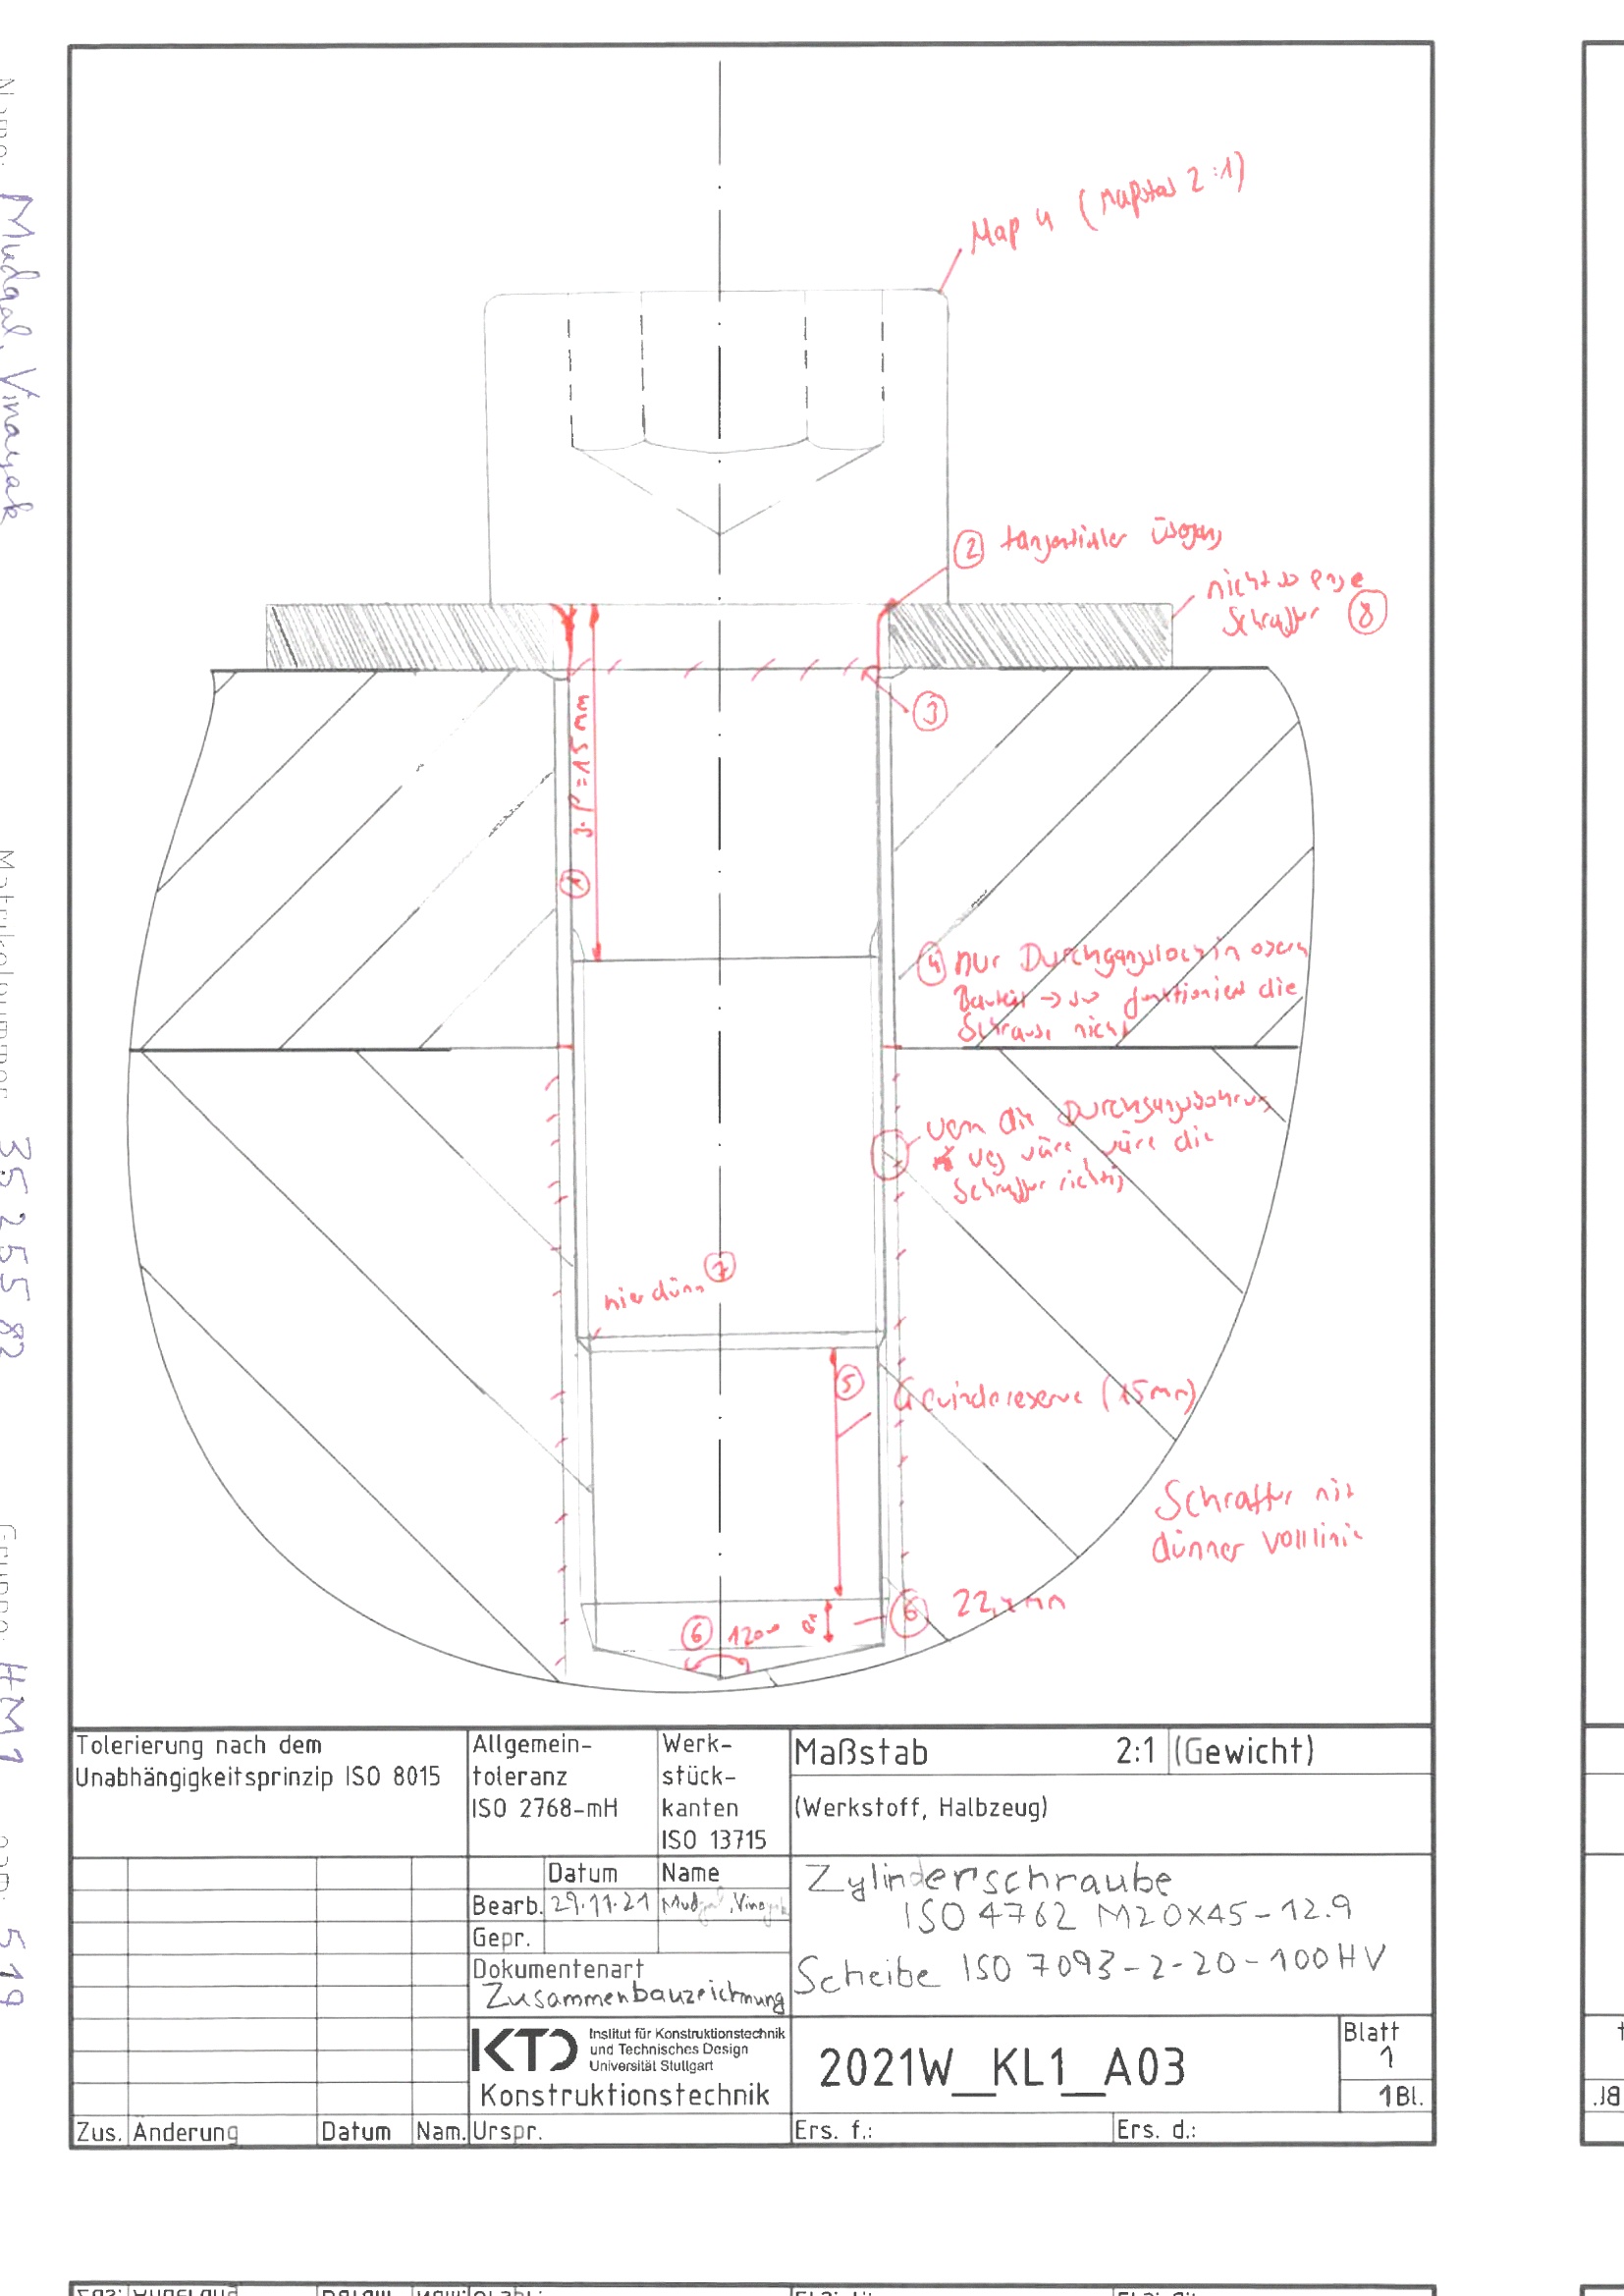 Mudgal, Vinayak
3525582
HM1
519
(Maßstab 2:1)
② tangentialer
nicht so enge
Schraffur ⑧
③
3·P=15mm
④ nur Durchgangsloch in obern
Bauteil → so funktioniert die
Schraube nicht
wenn die Durchgangsbohrung
weg wäre wäre die
Schraffur richtig
hier dünn ⑦
⑤ Gewindereserve (15mm)
Schraffur mit
dünner Volllinie
⑥ 120°
⑥
Tolerierung nach dem
Unabhängigkeitsprinzip ISO 8015
Allgemein-
toleranz
ISO 2768-mH
Werk-
stück-
kanten
ISO 13715
Maßstab 2:1 (Gewicht)
(Werkstoff, Halbzeug)
Datum Name
Bearb. 29.11.21 Mudgal, Vinayak
Gepr.
Dokumentenart
Zusammenbauzeichnung
Zylinderschraube
ISO 4762 M20x45-12.9
Scheibe ISO 7093-2-20-100HV
KTD
Institut für Konstruktionstechnik
und Technisches Design
Universität Stuttgart
Konstruktionstechnik
2021W_KL1_A03
Blatt
1
1Bl.
Zus. Änderung Datum Nam. Urspr. Ers. f.: Ers. d.: